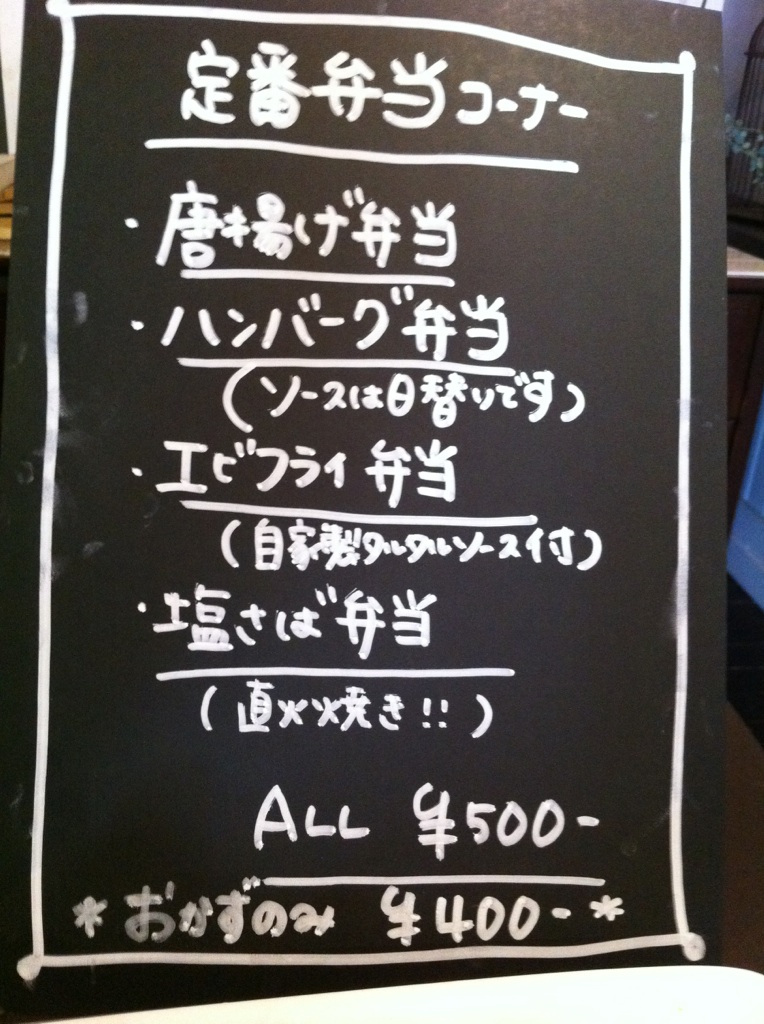 定番弁当コーナー
・唐揚げ弁当
・ハンバーグ弁当
(ソースは日替りです)
・エビフライ弁当
(自家製タルタルソース付)
・塩さば弁当
(直火焼き!!)
ALL ¥500-
*おかずのみ ¥400-*